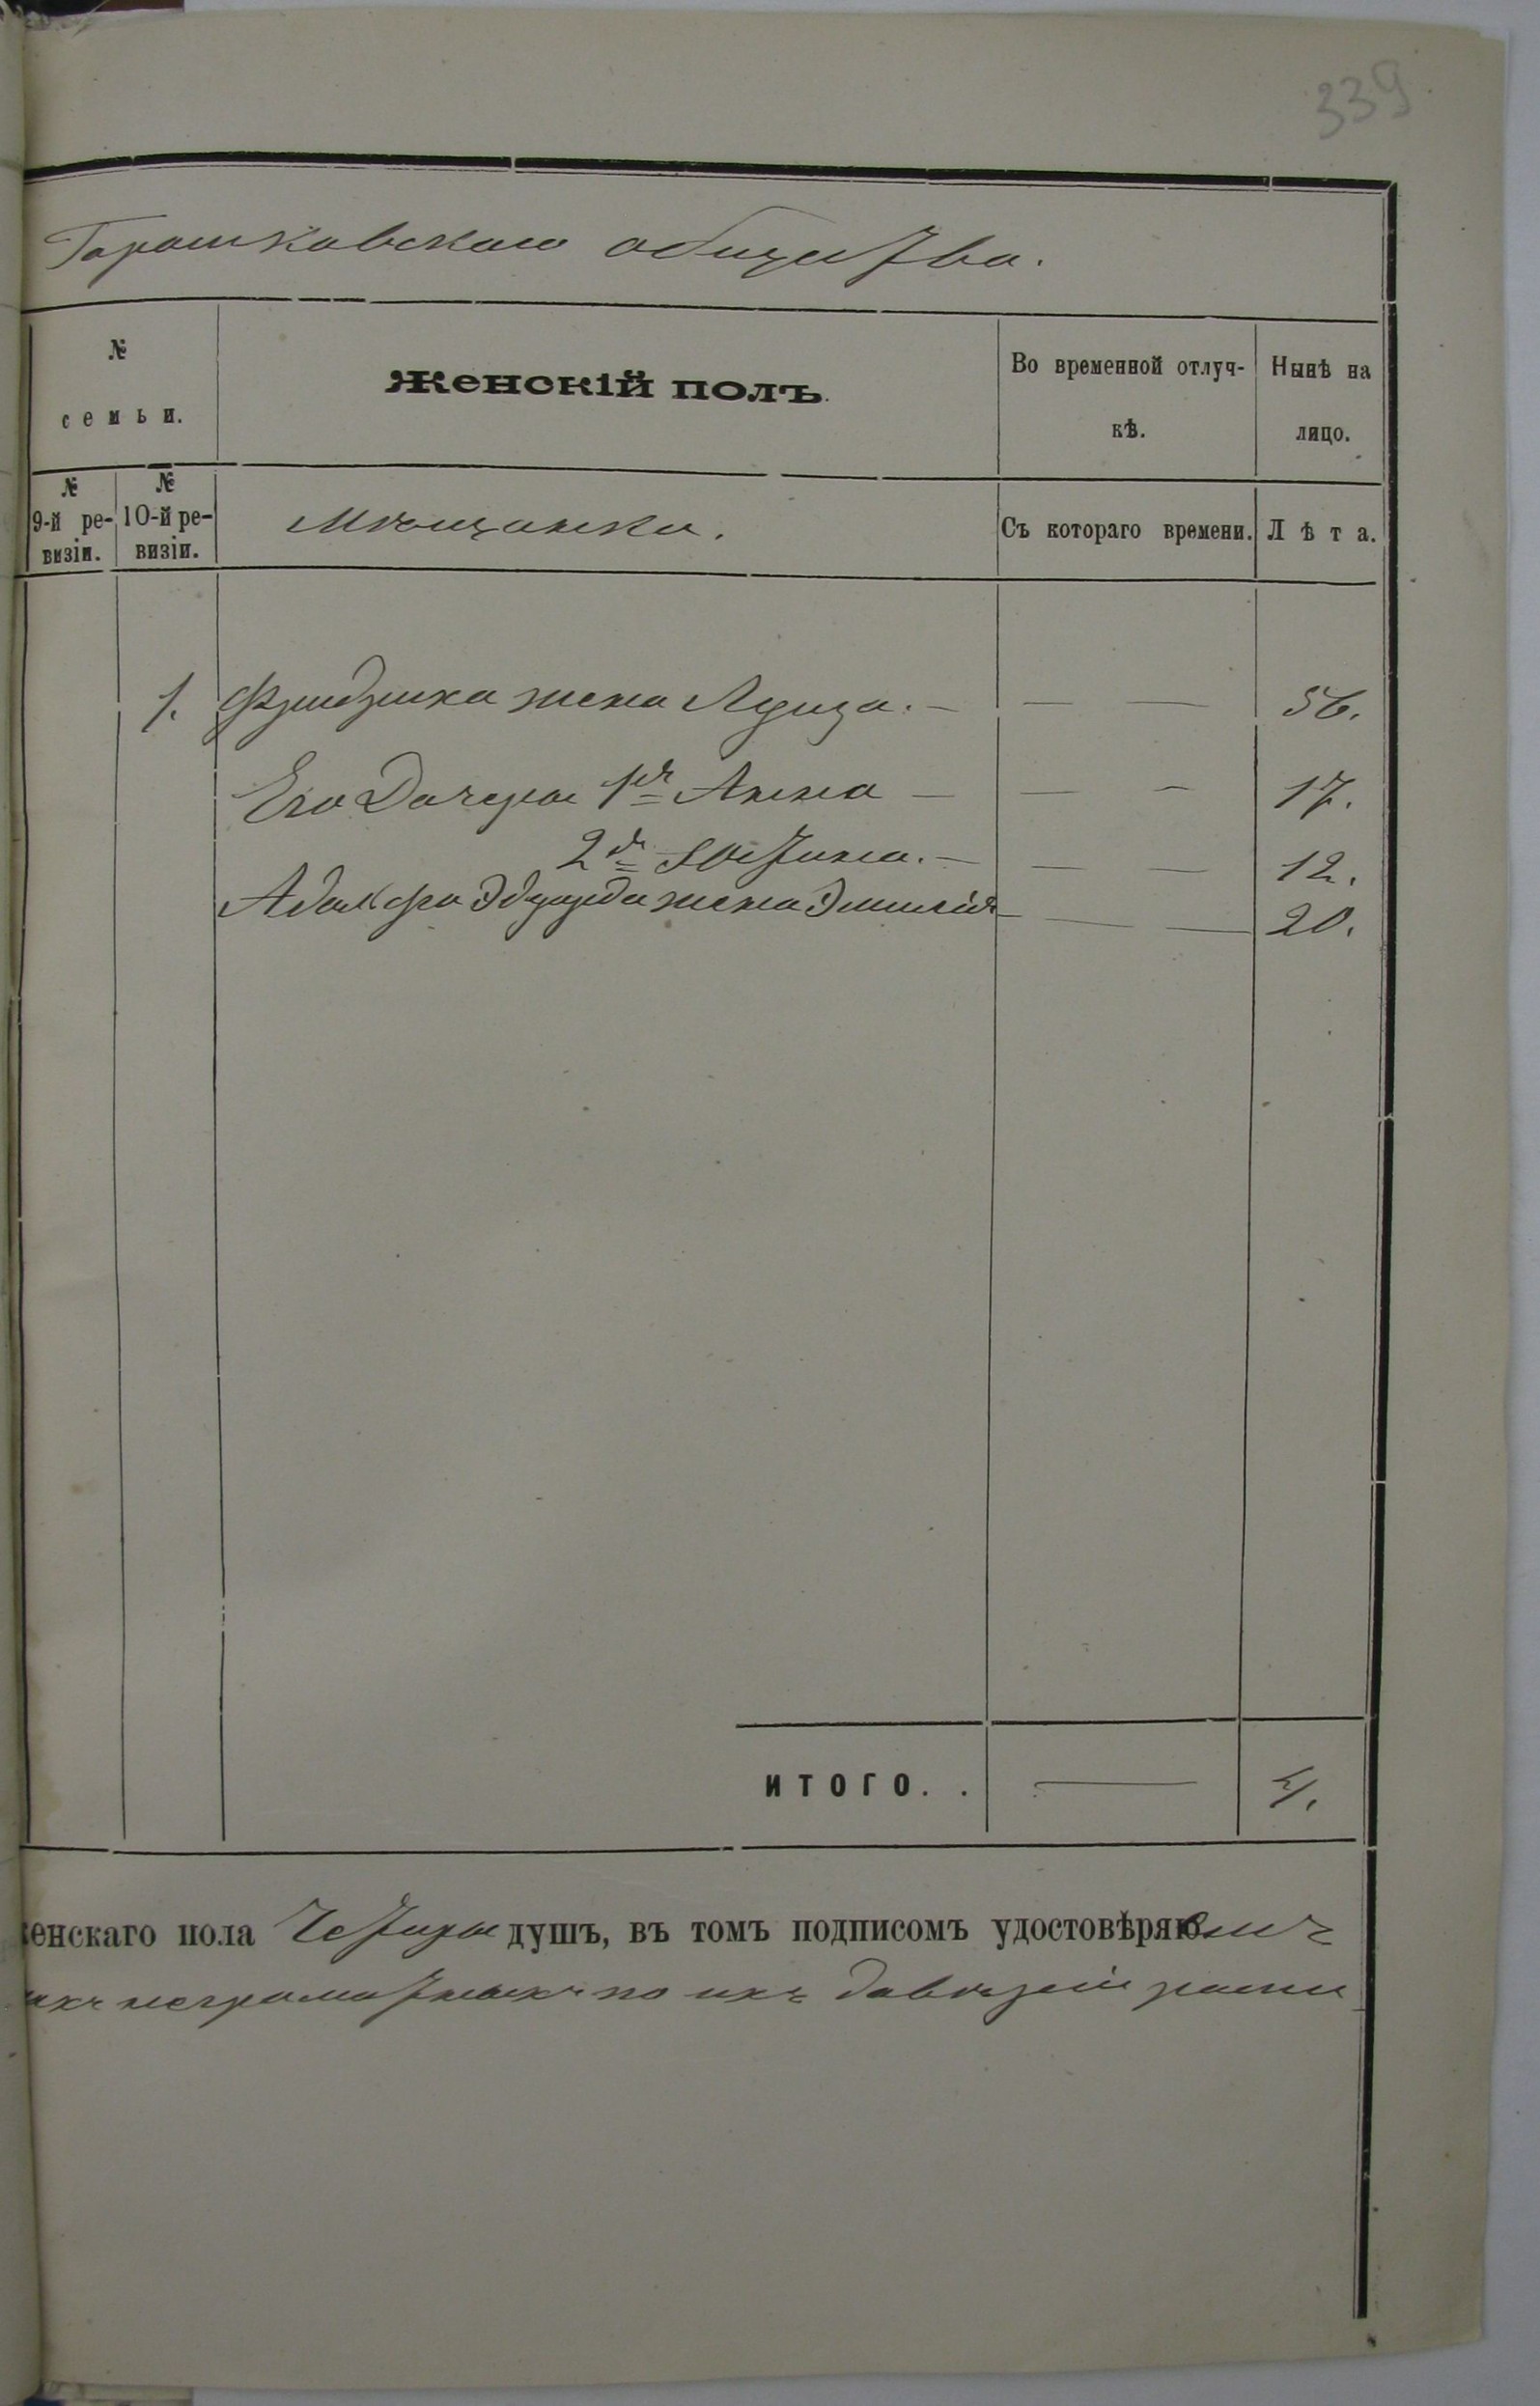 339
Горошковскаго общества.
№ семьи.
Женскій полъ.
Во временной отлуч-
кѣ.
Нынѣ на
лицо.
№ 9-й ре-
визіи.
№ 10-й ре-
визіи.
Мѣщанки.
Съ котораго времени.
Лѣта.
1. Фридриха жена Луиза. — — — 56.
Его Дочери 1я Анна — — — 17.
2я Юстина. — — — 12.
Адольфа Эдуарда жена Эмилія — — — 20.
ИТОГО. . — 4.
женскаго пола Четыре душъ, въ томъ подписомъ удостовѣряю
неграмотныхъ по ихъ довѣрію